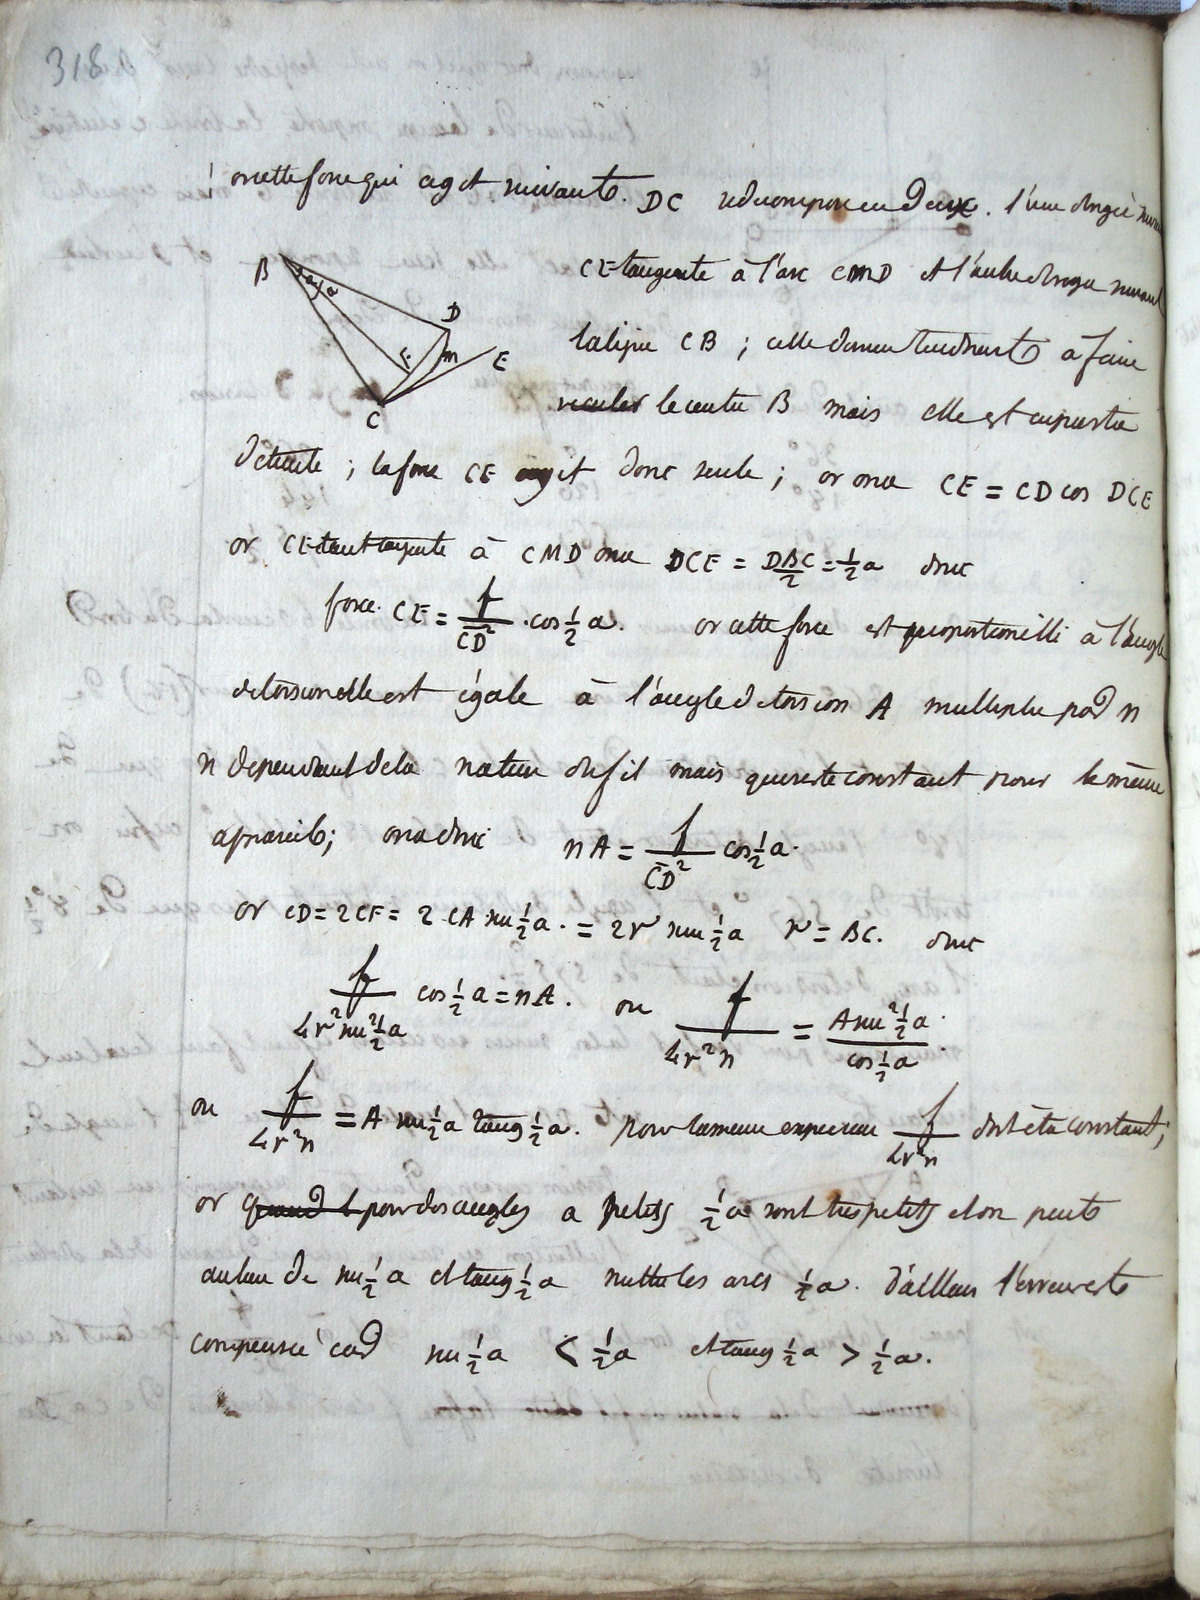 318
or cette force qui agit suivante. DC se decompose en Deux. l'une dirigée suivant
CE tangente à l'arc CMD et l'autre dirigée suivant
la ligne CB ; celle derniere tendrait à faire
reculer le centre B mais elle est en partie
detruite ; la force CE agit donc seule ; or on a CE = CD cos DCE
B a a D F m E C
or CE étant tangente à CMD on a DCE = DBC/2 = 1/2 a donc
force. CE = f/CD² . cos 1/2 a. or cette force est proportionelle à l'angle
de torsion elle est égale à l'angle de torsion A multiplié par n
n dependant de la nature du fil mais qui reste constant pour le même
appareil ; on a donc nA = f/CD² cos 1/2 a.
or CD = 2CF = 2 CA sin 1/2 a. = 2r sin 1/2 a r = BC. donc
f/4r² sin² 1/2 a cos 1/2 a = nA. ou f/4r²n = A sin² 1/2 a / cos 1/2 a.
ou f/4r²n = A sin 1/2 a tang 1/2 a. pour la meme experience f/4r²n doit être constant ;
or quand l pour des angles a petits 1/2 a sont très petits et on peut
au lieu de sin 1/2 a et tang 1/2 a mettre les arcs 1/2 a. d'ailleurs l'erreur est
compensée car sin 1/2 a < 1/2 a et tang 1/2 a > 1/2 a.